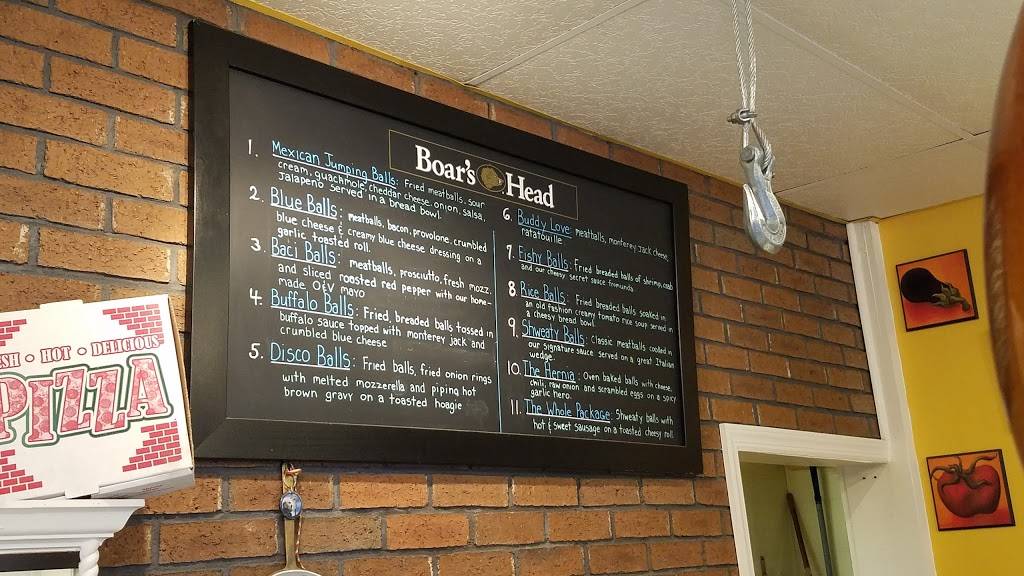 Boar's Head
1. Mexican Jumping Balls: Fried meatballs, sour
cream, guachmole, cheddar cheese, onion, salsa,
Jalapeño served in a bread bowl.
2. Blue Balls: meatballs, bacon, provolone, crumbled
blue cheese & creamy blue cheese dressing on a
garlic, toasted roll.
3. Baci Balls: meatballs, prosciutto, fresh mozz.
and sliced roasted red pepper with our home-
made O&V mayo
4. Buffalo Balls: Fried, breaded balls tossed in
buffalo sauce topped with monterey jack and
crumbled blue cheese
5. Disco Balls: Fried balls, fried onion rings
with melted mozzerella and piping hot
brown gravy on a toasted hoagie
6. Buddy Love: meatballs, monterey jack cheese,
ratatouille
7. Fishy Balls: Fried breaded balls of shrimp, crab
and our cheesy secret sauce fromunda.
8. Rice Balls: Fried breaded balls soaked in
an old fashion creamy tomato rice soup served in
a cheesy bread bowl.
9. Shweaty Balls: Classic meatballs cooked in
our signature sauce served on a great Italian
wedge.
10. The Hernia: Oven baked balls with cheese,
chili, raw onion and scrambled eggs on a spicy
garlic hero.
11. The Whole Package: Shweaty balls with
hot & sweet sausage on a toasted cheesy roll.
SH • HOT • DELICIOUS
PIZZA